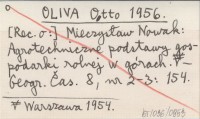 OLIVA Otto 1956.
[Rec. o:] Mieczysław Nowak:
Agrotechniczne podstawy gos-
podarki rolnej w górach. #
Geogr. Čas. 8, nr 2-3: 154.
# Warszawa 1954.